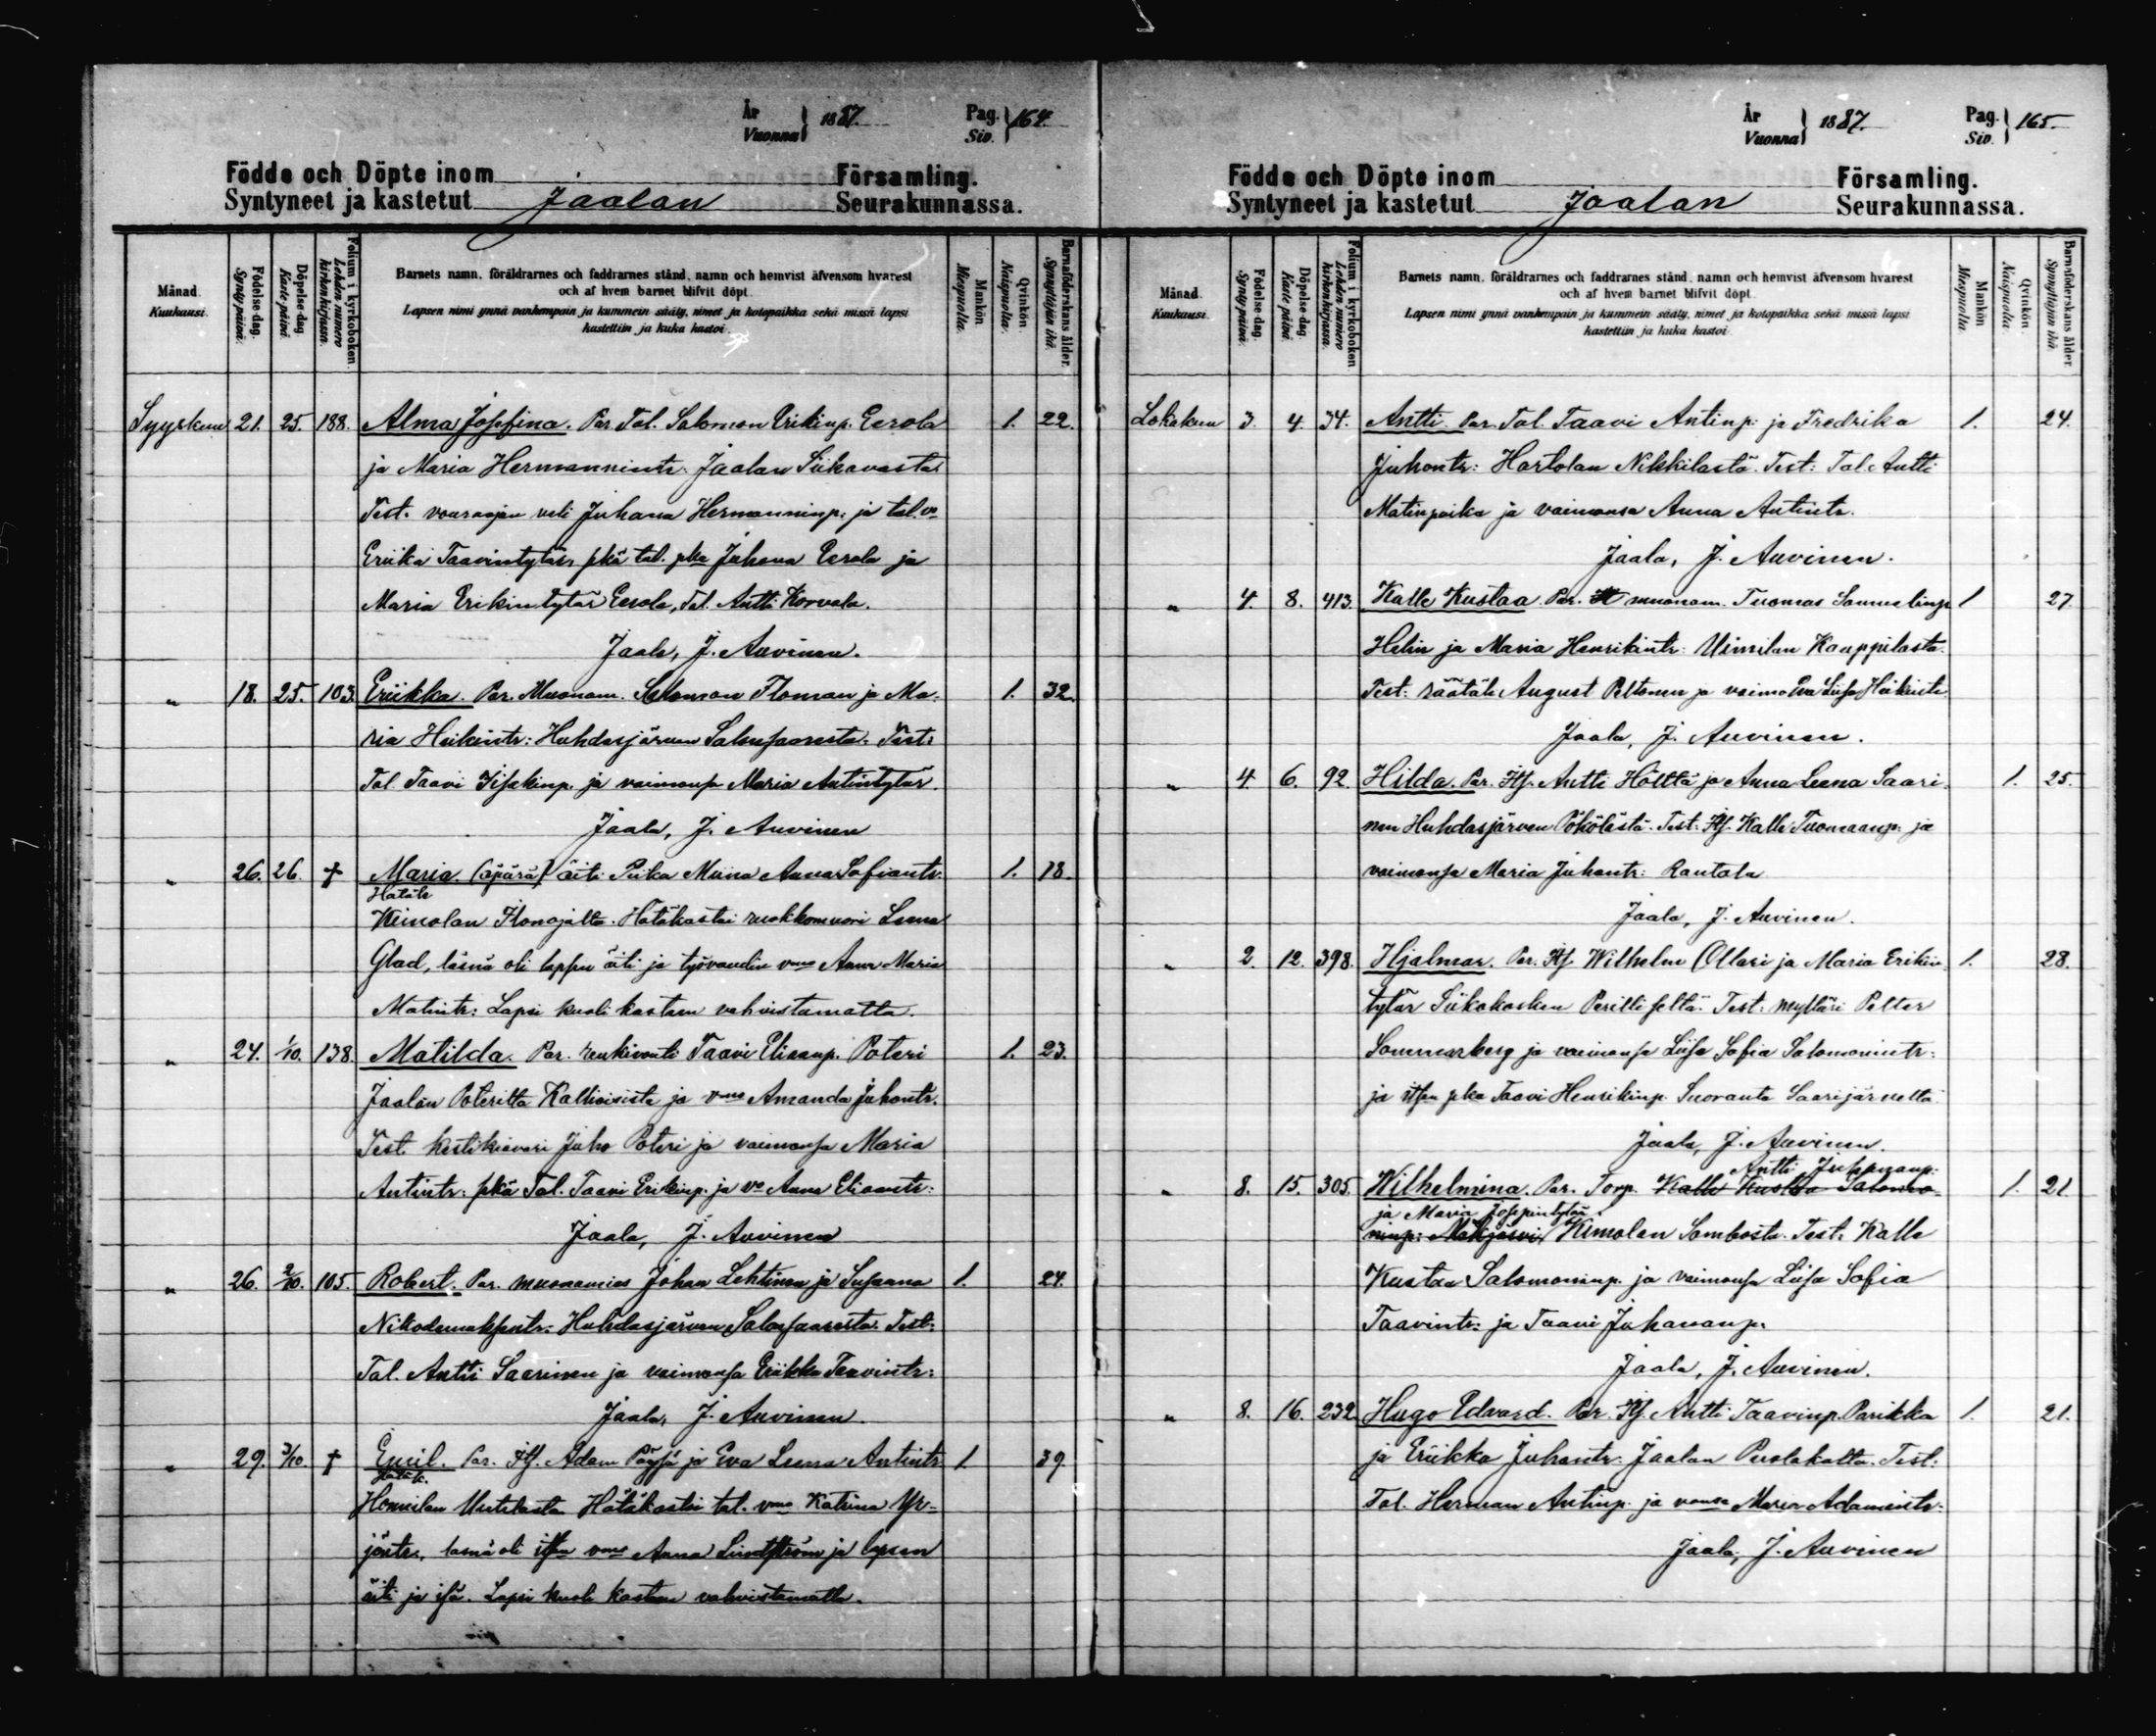 År
Vuonna } 1887. Pag.
Siv. } 164.
Födde och Döpte inom Församling.
Syntyneet ja kastetut Jaalan Seurakunnassa.
Månad. Kuukausi. Födelse-dag. Synty päivä. Döpelse-dag. Kaste päivä. Folium i kyrkoboken. Lehden numero kirkonkirjassa. Barnets namn, föräldrarnes och faddrarnes stånd, namn och hemvist äfvensom hvarest och af hvem barnet blifvit döpt. Lapsen nimi ynnä vanhempain ja kummein sääty, nimet ja kotopaikka sekä missä lapsi kastettiin ja kuka kastoi. Mankön. Miespuolta. Qvinkön. Naispuolta. Barnaföderskans ålder. Synnyttäjän ikä.
Syyskuu 21. 25. 188. Alma Josefina. Par. Tal. Salomon Erikinp. Eerola 1. 22.
ja Maria Hermannintr. Jaalan Siikavasta
Test. veli Juhana Hermanninp: ja tal. vo
Eriika Taavintytär, pkä tal. pka Juhana Eerola ja
Maria Erikintytär Eerola, Tal. Antti Korvala.
Jaala, J. Auvinen.
" 18. 25. 103. Eriikka. Par. Muonam. Salomon Floman ja Ma- 1. 32.
ria Heikintr: Huhdasjärven Salosaaresta. Test:
Tal. Taavi Iisakinp. ja vaimonsa Maria Antintytär.
Jaala, J. Auvinen
" 26. 26. † Maria (äpärä) äiti Piika Miina Anna Sofiantr. 1. 18.
Hätäk
Kimolan Ilonojalta. Hätäkastoi ruokkomuori Leena
Glad, läsnä oli lapsen äiti ja työvaudin vmo Anna Maria
Matintr: Lapsi kuoli kasteen vahvistamatta.
" 24. 1/10. 138. Matilda. Par. renkivouti Taavi Eliaanp. Poteri 1. 23.
Jaalan Poterilta Kallioisista ja vmo Amanda Juhontr.
Test. kestikievari Juho Poteri ja vaimonsa Maria
Antintr: pkä Tal. Taavi Erikinp. ja vo Anna Eliaantr:
Jaala, J. Auvinen
" 26. 2/10. 105. Robert. Par. muonamies Johan Lehtinen ja Susanna 1. 24.
Nikodemuksentr. Huhdasjärven Salosaaresta. Test:
Tal. Antti Saarinen ja vaimonsa Eriikka Taavintr:
Jaala, J. Auvinen.
" 29. 3/10. † Emil. Par. Itf. Adam Pöyjä ja Eva Leena Antintr 1. 39.
Hätäk.
Uutelasta Hätäkastoi tal. vmo Katriina Yr-
jöntr., läsnä oli itsen vmo Anna Lindström ja lapsen
äiti ja isä. Lapsi kuoli kasteen vahvistamatta.
År
Vuonna } 1887. Pag.
Siv. } 165.
Födde och Döpte inom Församling.
Syntyneet ja kastetut Jaalan Seurakunnassa.
Månad. Kuukausi. Födelse-dag. Synty päivä. Döpelse-dag. Kaste päivä. Folium i kyrkoboken. Lehden numero kirkonkirjassa. Barnets namn, föräldrarnes och faddrarnes stånd, namn och hemvist äfvensom hvarest och af hvem barnet blifvit döpt. Lapsen nimi ynnä vanhempain ja kummein sääty, nimet ja kotopaikka sekä missä lapsi kastettiin ja kuka kastoi. Mankön. Miespuolta. Qvinkön. Naispuolta. Barnaföderskans ålder. Synnyttäjän ikä.
Lokakuu 3. 4. 34. Antti. Par. Tal. Taavi Antinp: ja Fredrika 1. 24.
Juhontr: Hartolan Nikkilästä. Test: Tal. Antti
Matinpoika ja vaimonsa Anna Antintr.
Jaala, J. Auvinen.
" 4. 8. 413. Kalle Kustaa. Par. muonam. Tuomas Samuelinp 1 27.
Helin ja Maria Henrikintr: Uimilan Kauppilasta.
Test: räätäli August Peltonen ja vaimo Eva Liisa Heikintr
Jaala, J. Auvinen.
" 4. 6. 92. Hilda. Par. Itf. Antti Hölttä ja Anna Leena Saari- 1. 25.
nen Huhdasjärven Pökölästä. Test: Itf. Kalle Tuomaanp: ja
vaimonsa Maria Juhontr: Rautala
Jaala, J. Auvinen.
" 2. 12. 398. Hjalmar. Par. Itf. Wilhelm Ollari ja Maria Erikin- 1. 28.
tytär Siikakosken Test: mylläri Petter
Sommarberg ja vaimonsa Liisa Sofia Salomonintr:
ja itsen pka Taavi Henrikinp. Suoranta Saarijärveltä
Jaala, J. Auvinen.
Antti Juhananp:
" 8. 15. 305. Wilhelmina. Par. Torp. Kalle Kustaa Salomo- 1. 21
ja Maria Josepintytär
ninp: Mäkjärvi Kimolan Sombosta. Test: Kalle
Kustaa Salomoninp. ja vaimonsa Liisa Sofia
Taavintr: ja Taavi Juhananp:
Jaala, J. Auvinen.
" 8. 16. 232. Hugo Edvard. Par. Itf. Antti Taavinp. Parikka 1. 21.
ja Eriikka Juhontr: Jaalan Puolakalta. Test:
Tal. Herman Antinp. ja vmonsa Maria Adamintr:
Jaala, J. Auvinen